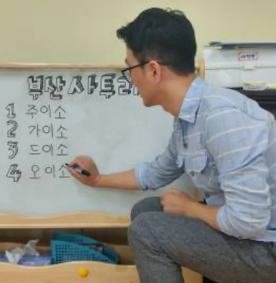 부산사투리
1 주이소
2 가이소
3 드이소
4 오이소